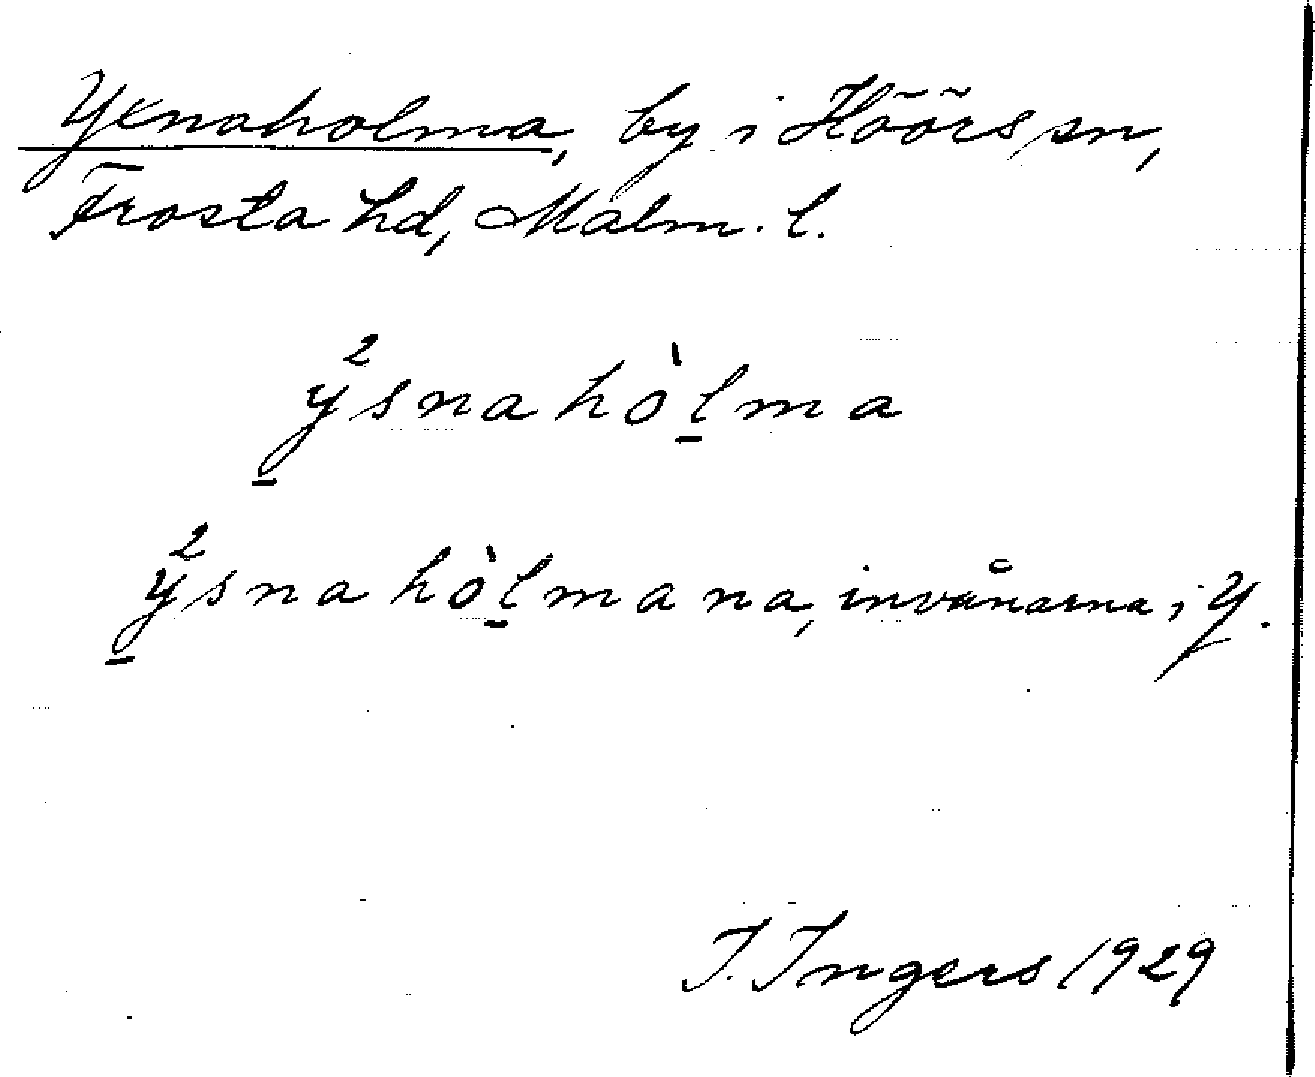 Yxnaholma, by i Höörs sn,
Frosta hd, Malm. l.
2
ysnahòlma
2
ysnahòlmana, invånarna i Y.
I. Ingers 1929